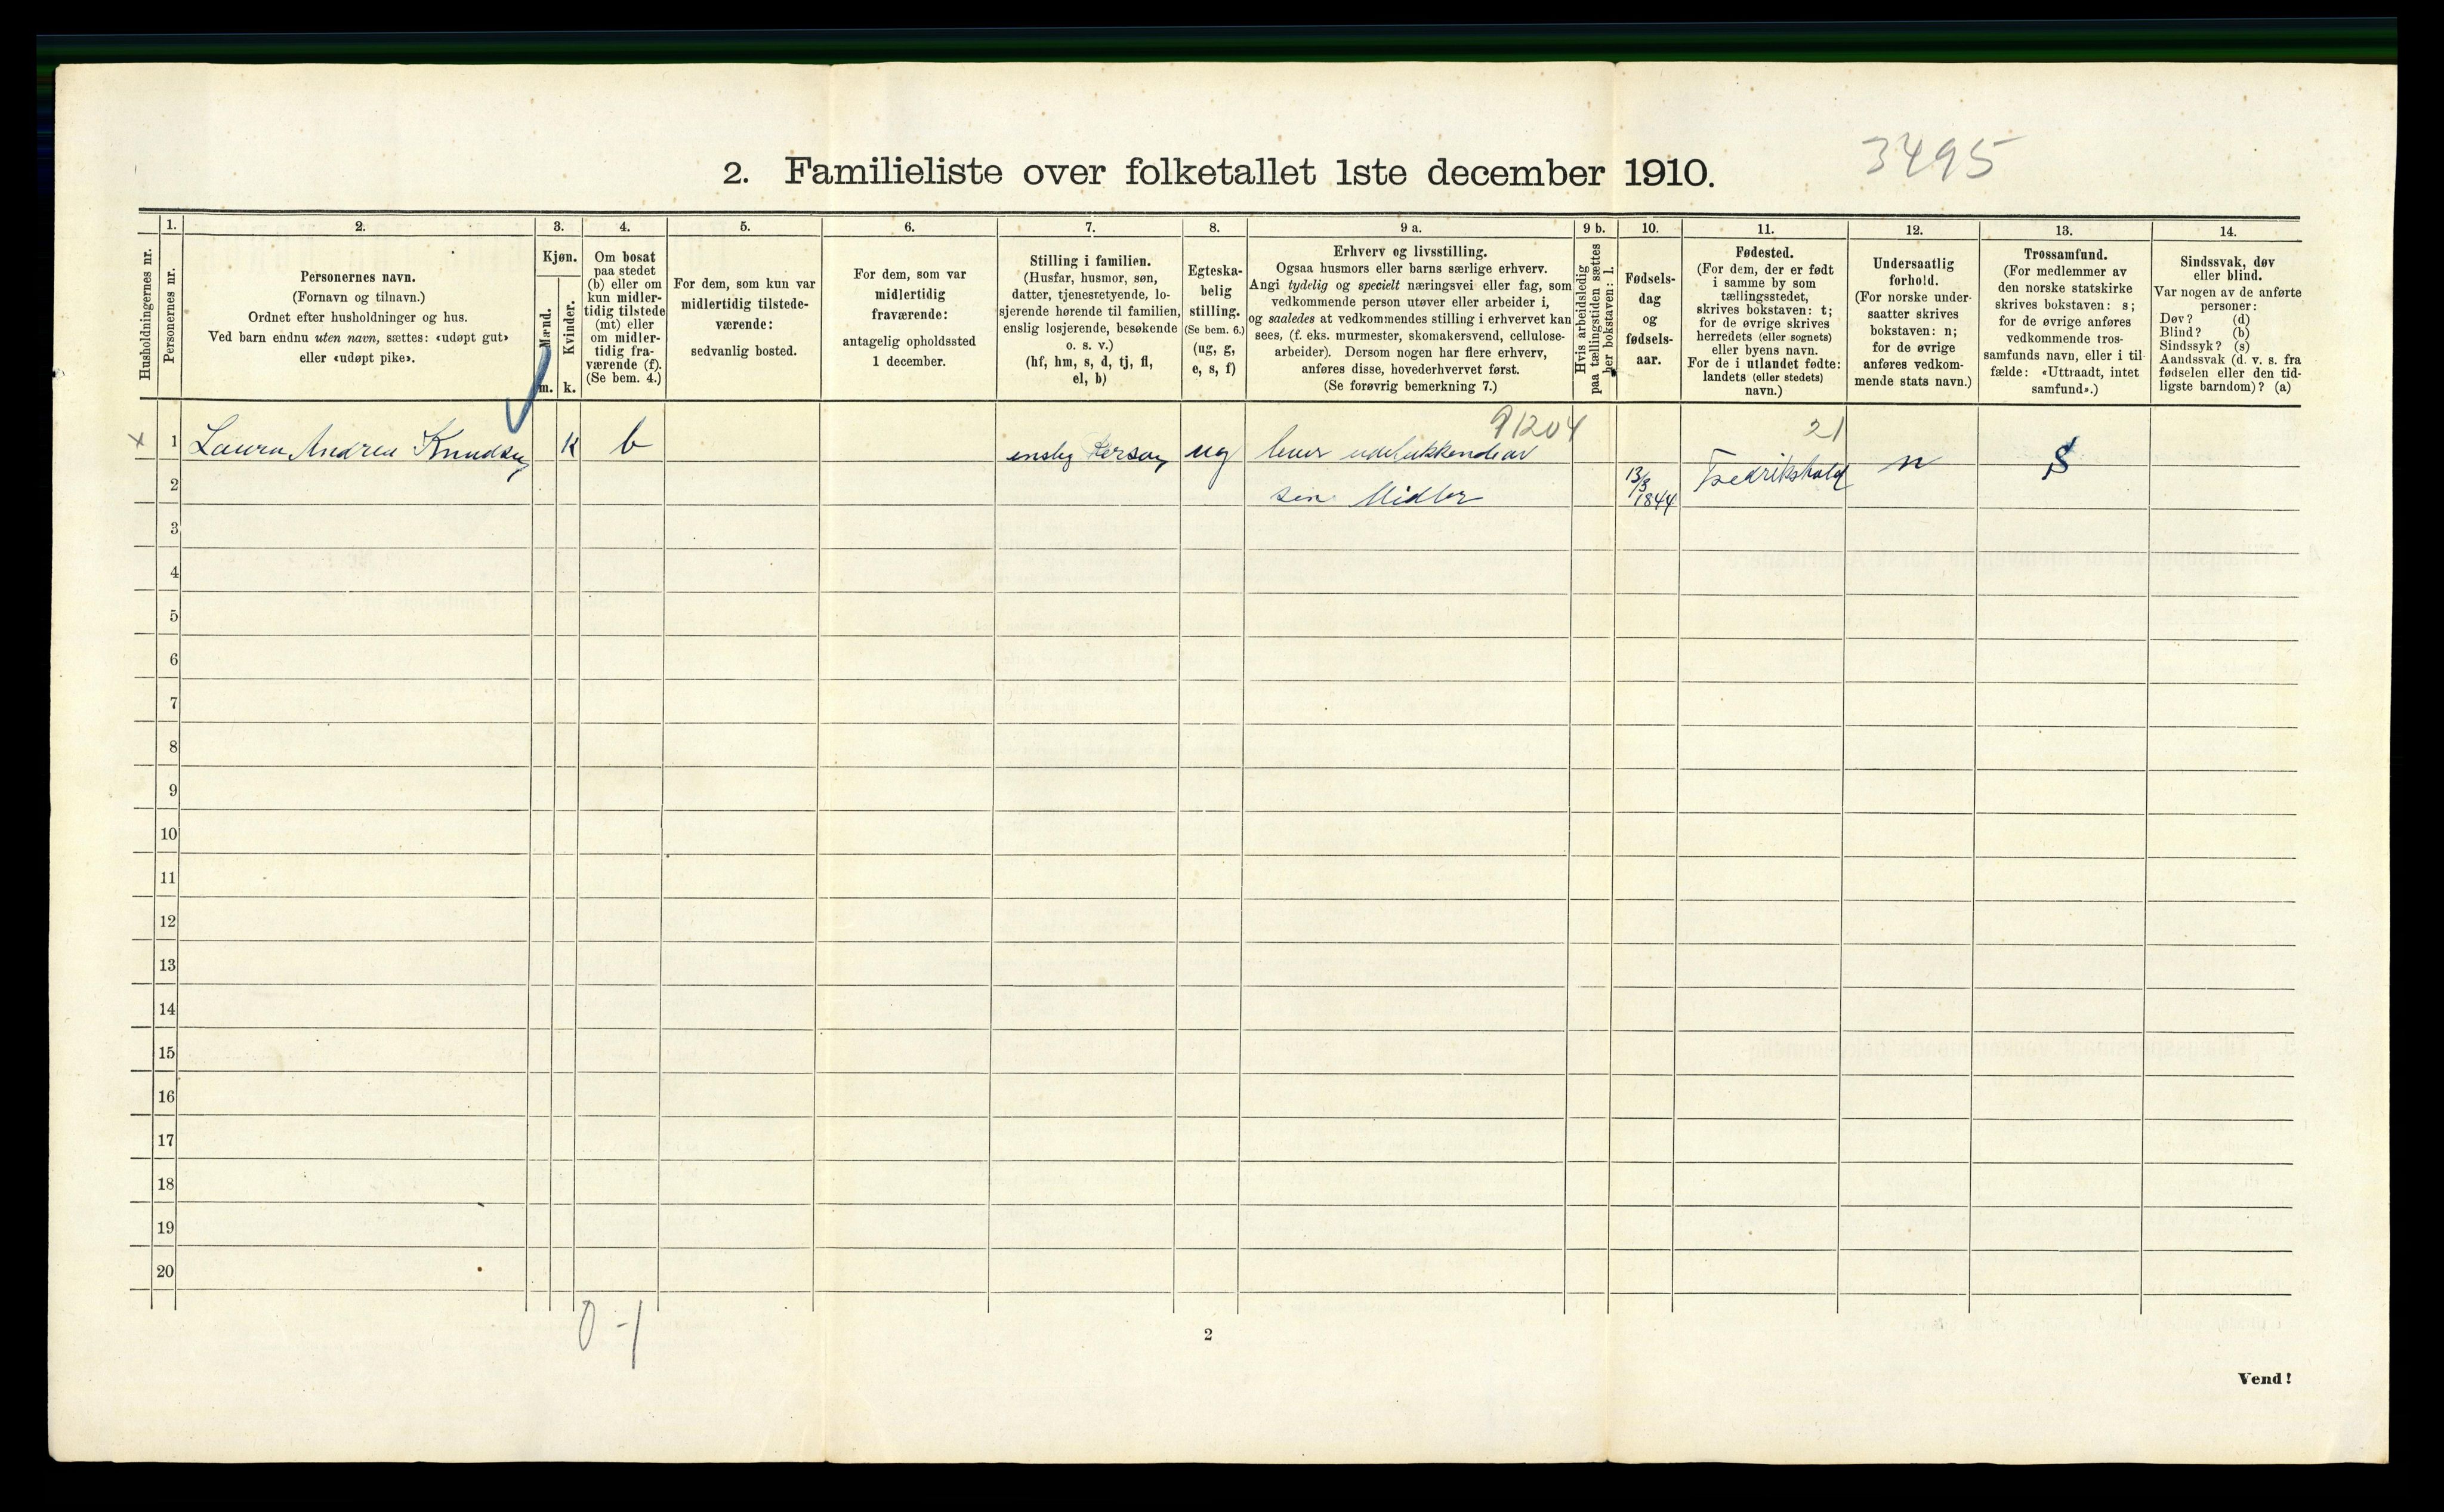 3495
2. Familieliste over folketallet 1ste december 1910.
Husholdningernes nr.
1.
Personernes nr.
2.
Personernes navn.
(Fornavn og tilnavn.)
Ordnet efter husholdninger og hus.
Ved barn endnu uten navn, sættes: «udøpt gut»
eller «udøpt pike».
3.
Kjøn.
Mænd.
m.
Kvinder.
k.
4.
Om bosat
paa stedet
(b) eller om
kun midler-
tidig tilstede
(mt) eller
om midler-
tidig fra-
værende (f).
(Se bem. 4.)
5.
For dem, som kun var
midlertidig tilstede-
værende:
sedvanlig bosted.
6.
For dem, som var
midlertidig
fraværende:
antagelig opholdssted
1 december.
7.
Stilling i familien.
(Husfar, husmor, søn,
datter, tjenestetyende, lo-
sjerende hørende til familien,
enslig losjerende, besøkende
o. s. v.)
(hf, hm, s, d, tj, fl,
el, b)
8.
Egteska-
belig
stilling.
(Se bem. 6.)
(ug, g,
e, s, f)
9 a.
Erhverv og livsstilling.
Ogsaa husmors eller barns særlige erhverv.
Angi tydelig og specielt næringsvei eller fag, som
vedkommende person utøver eller arbeider i,
og saaledes at vedkommendes stilling i erhvervet kan
sees, (f. eks. murmester, skomakersvend, cellulose-
arbeider). Dersom nogen har flere erhverv,
anføres disse, hovederhvervet først.
(Se forøvrig bemerkning 7.)
9 b.
Hvis arbeidsledig
paa tællingstiden sættes
her bokstaven: l.
10.
Fødsels-
dag
og
fødsels-
aar.
11.
Fødested.
(For dem, der er født
i samme by som
tællingsstedet,
skrives bokstaven: t;
for de øvrige skrives
herredets (eller sognets)
eller byens navn.
For de i utlandet fødte:
landets (eller stedets)
navn.)
12.
Undersaatlig
forhold.
(For norske under-
saatter skrives
bokstaven: n;
for de øvrige
anføres vedkom-
mende stats navn.)
13.
Trossamfund.
(For medlemmer av
den norske statskirke
skrives bokstaven: s;
for de øvrige anføres
vedkommende tros-
samfunds navn, eller i til-
fælde: «Uttraadt, intet
samfund».)
14.
Sindssvak, døv
eller blind.
Var nogen av de anførte
personer:
Døv? (d)
Blind? (b)
Sindssyk? (s)
Aandssvak (d. v. s. fra
fødselen eller den tid-
ligste barndom)? (a)
91204
21
x 1 Laura Andrea Knudsen K b enslig Person ug lever udelukkende av
2 sin Midler 13/3 1844 Fredrikshald n S
3
4
5
6
7
8
9
10
11
12
13
14
15
16
17
18
19
20
0-1
2
Vend!